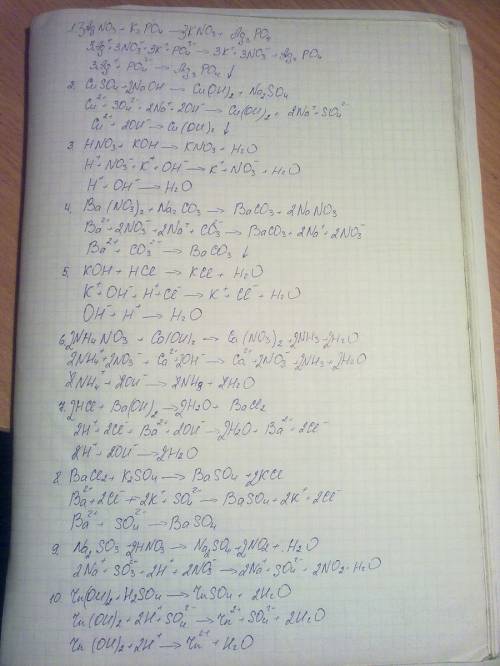 1. 3AgNO₃ + K₃PO₄ → 3KNO₃ + Ag₃PO₄
3Ag⁺ + 3NO₃⁻ + 3K⁺ + PO₄³⁻ → 3K⁺ + 3NO₃⁻ + Ag₃PO₄
3Ag⁺ + PO₄³⁻ → Ag₃PO₄ ↓
2. CuSO₄ + 2NaOH → Cu(OH)₂ + Na₂SO₄
Cu²⁺ + SO₄²⁻ + 2Na⁺ + 2OH⁻ → Cu(OH)₂ + 2Na⁺ + SO₄²⁻
Cu²⁺ + 2OH⁻ → Cu(OH)₂ ↓
3. HNO₃ + KOH → KNO₃ + H₂O
H⁺ + NO₃⁻ + K⁺ + OH⁻ → K⁺ + NO₃⁻ + H₂O
H⁺ + OH⁻ → H₂O
4. Ba(NO₃)₂ + Na₂CO₃ → BaCO₃ + 2NaNO₃
Ba²⁺ + 2NO₃⁻ + 2Na⁺ + CO₃²⁻ → BaCO₃ + 2Na⁺ + 2NO₃⁻
Ba²⁺ + CO₃²⁻ → BaCO₃ ↓
5. KOH + HCl → KCl + H₂O
K⁺ + OH⁻ + H⁺ + Cl⁻ → K⁺ + Cl⁻ + H₂O
OH⁻ + H⁺ → H₂O
6. 2NH₄NO₃ + Ca(OH)₂ → Ca(NO₃)₂ + 2NH₃ + 2H₂O
2NH₄⁺ + 2NO₃⁻ + Ca²⁺ + 2OH⁻ → Ca²⁺ + 2NO₃⁻ + 2NH₃ + 2H₂O
2NH₄⁺ + 2OH⁻ → 2NH₃ + 2H₂O
7. 2HCl + Ba(OH)₂ → 2H₂O + BaCl₂
2H⁺ + 2Cl⁻ + Ba²⁺ + 2OH⁻ → 2H₂O + Ba²⁺ + 2Cl⁻
2H⁺ + 2OH⁻ → 2H₂O
8. BaCl₂ + K₂SO₄ → BaSO₄ + 2KCl
Ba²⁺ + 2Cl⁻ + 2K⁺ + SO₄²⁻ → BaSO₄ + 2K⁺ + 2Cl⁻
Ba²⁺ + SO₄²⁻ → BaSO₄
9. Na₂SO₃ + 2HNO₃ → Na₂SO₄ + 2NO₂ + H₂O
2Na⁺ + SO₃²⁻ + 2H⁺ + 2NO₃⁻ → 2Na⁺ + SO₄²⁻ + 2NO₂ + H₂O
10. Zn(OH)₂ + H₂SO₄ → ZnSO₄ + 2H₂O
Zn(OH)₂ + 2H⁺ + SO₄²⁻ → Zn²⁺ + SO₄²⁻ + 2H₂O
Zn(OH)₂ + 2H⁺ → Zn²⁺ + H₂O